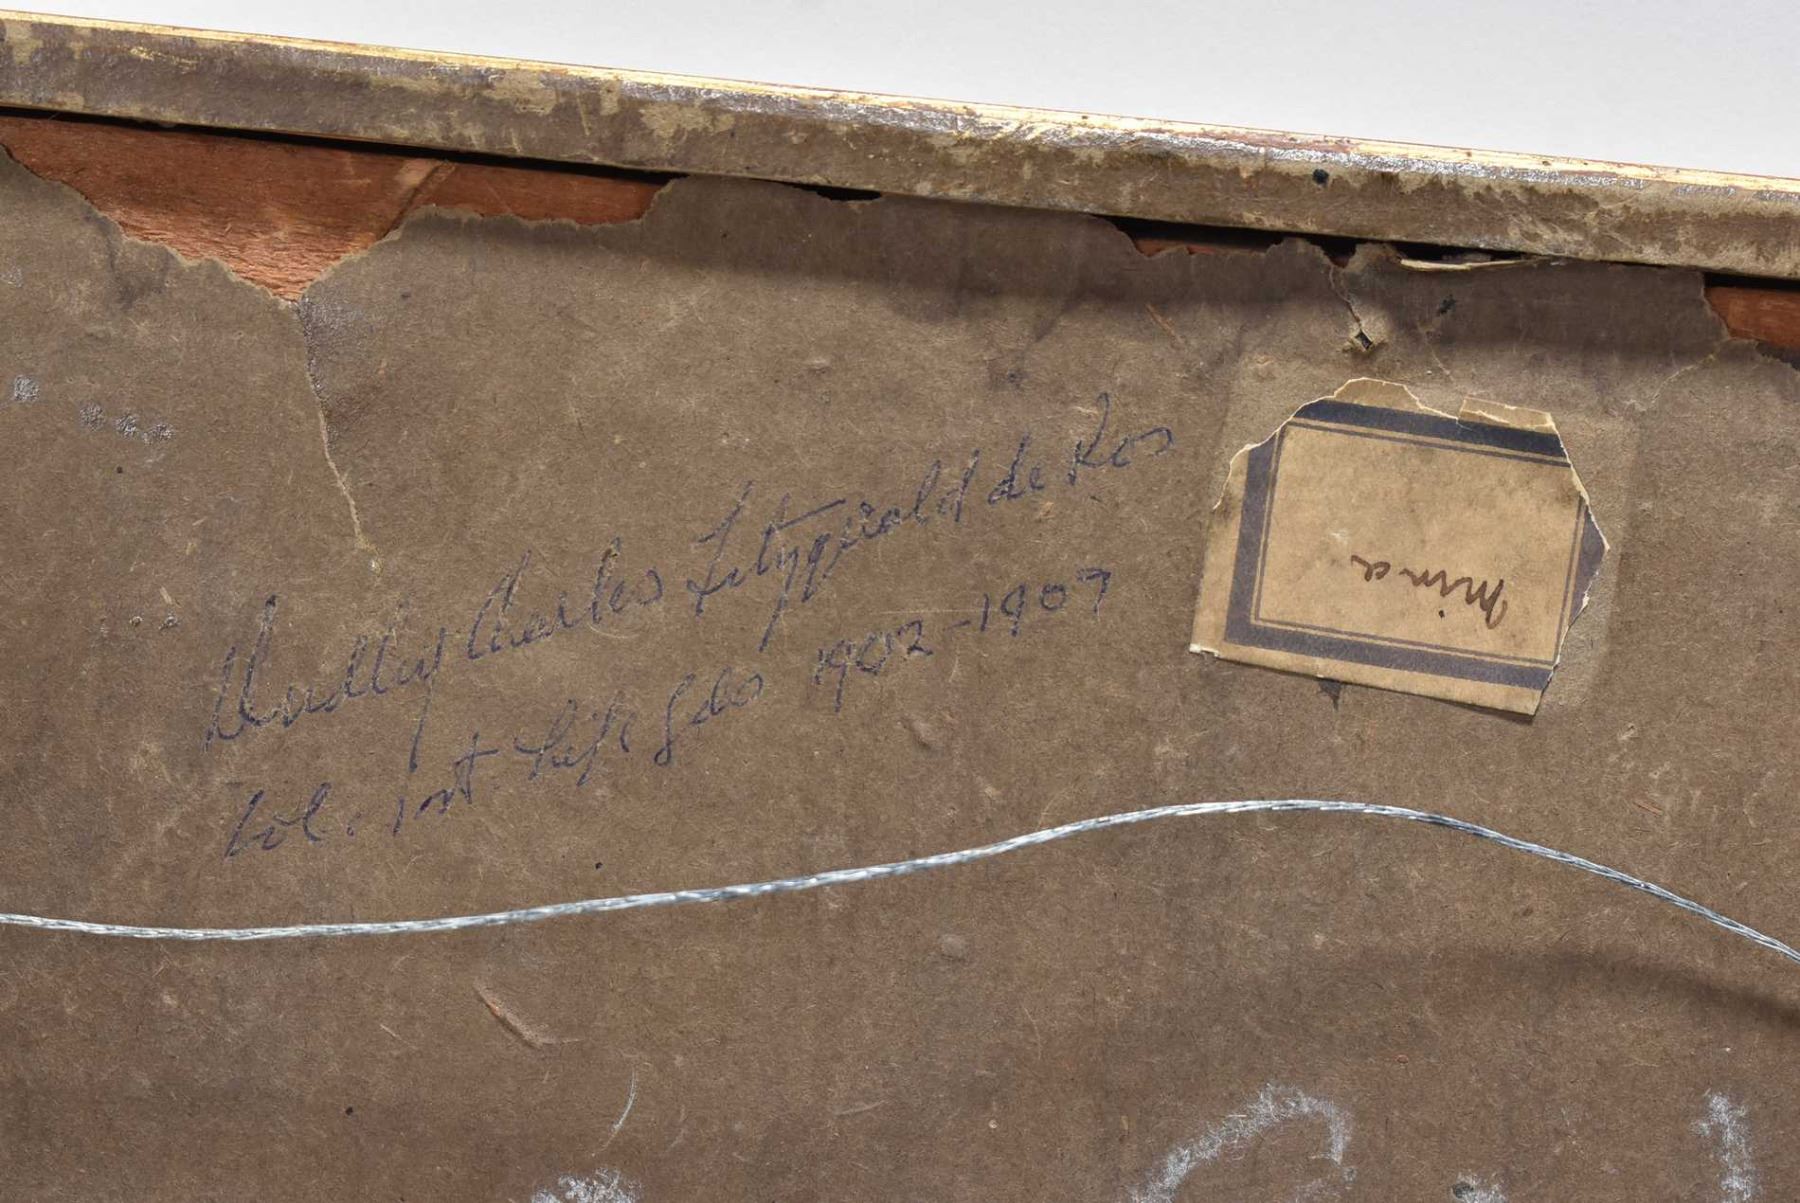 Dudley Charles Fitzgerald de Ros
Col. 1st. Life Gds 1902-1907
Mima